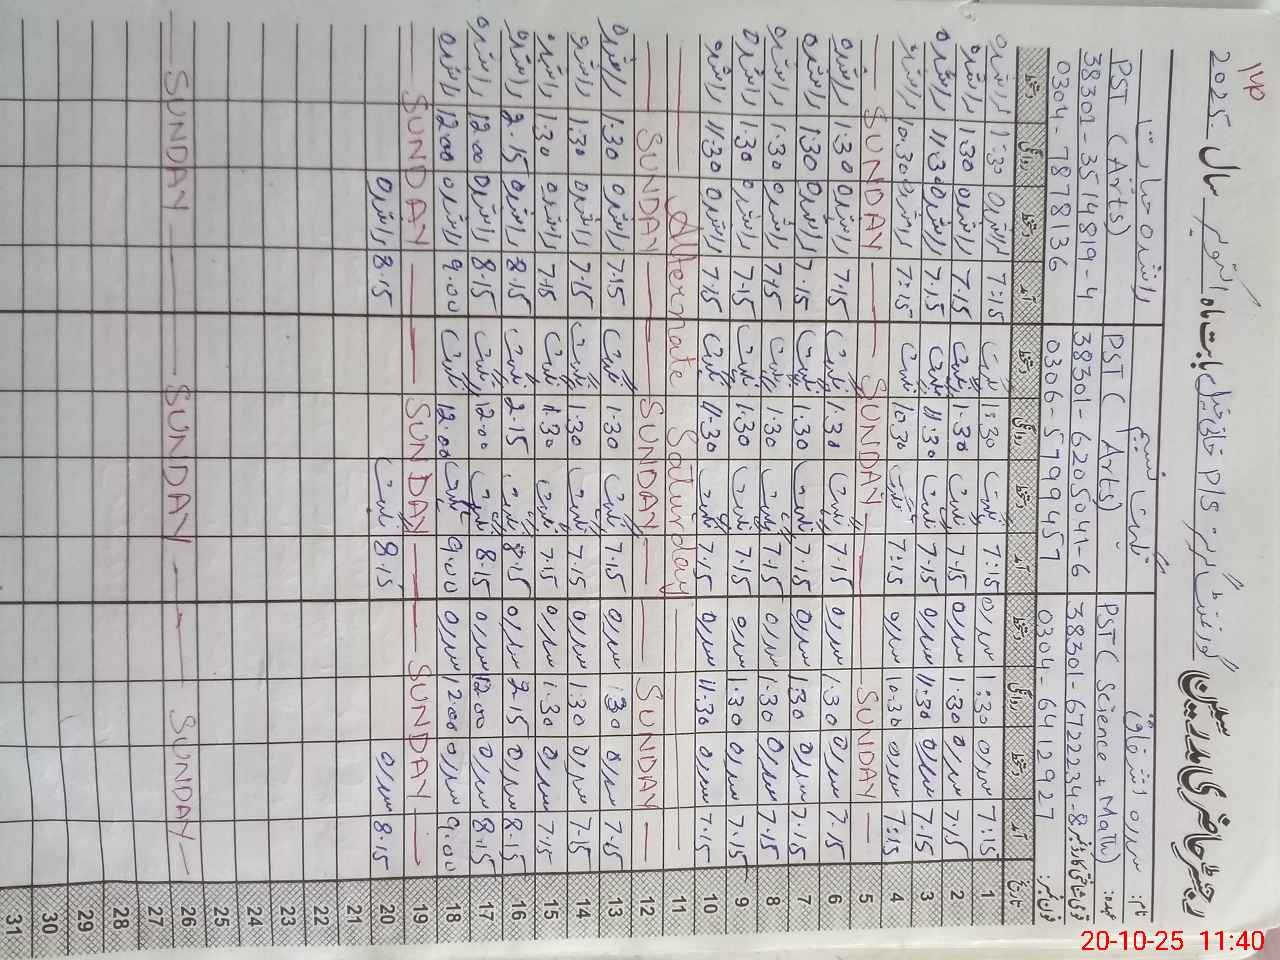 140
رجسٹر حاضری مدرسین گورنمنٹ گرلز P/S بابت ماہ اکتوبر سال 2025
نام: سدرہ اشفاق
عہدہ: PST ( Science + Math)
قومی شناختی کارڈ نمبر 38301-6722234-8
فون نمبر: 0304-6412927
PST ( Arts)
38301-6205041-6
0306-5799457
PST ( Arts)
38301-3514819-4
0304-7878136
تاریخ آمد دستخط روانگی دستخط آمد دستخط روانگی دستخط آمد دستخط روانگی دستخط
1 7:15 سدرہ 1:30 سدرہ 7:15 1:30 7:15 راشدہ 1:30 راشدہ
2 7.15 سدرہ 1.30 سدرہ 7.15 1.30 7.15 راشدہ 1.30 راشدہ
3 7.15 سدرہ 11.30 سدرہ 7.15 11.30 7.15 راشدہ 11.30 راشدہ
4 7:15 سدرہ 10.30 سدرہ 7:15 10.30 7:15 راشدہ 10.30 راشدہ
5 SUNDAY SUNDAY SUNDAY
6 7.15 سدرہ 1.30 سدرہ 7.15 1.30 7.15 راشدہ 1.30 راشدہ
7 7.15 سدرہ 1.30 سدرہ 7.15 1.30 7.15 راشدہ 1.30 راشدہ
8 7.15 سدرہ 1.30 سدرہ 7.15 1.30 7.15 راشدہ 1.30 راشدہ
9 7.15 سدرہ 1.30 سدرہ 7.15 1.30 7.15 راشدہ 1.30 راشدہ
10 7.15 سدرہ 11.30 سدرہ 7.15 11.30 7.15 راشدہ 11.30 راشدہ
11 Alternate Saturday
12 SUNDAY SUNDAY SUNDAY
13 7.15 سدرہ 1.30 سدرہ 7.15 1.30 7.15 راشدہ 1.30 راشدہ
14 7.15 سدرہ 1.30 سدرہ 7.15 1.30 7.15 راشدہ 1.30 راشدہ
15 7.15 سدرہ 1.30 سدرہ 7.15 1.30 7.15 راشدہ 1.30 راشدہ
16 8.15 سدرہ 2.15 سدرہ 8.15 2.15 8.15 راشدہ 2.15 راشدہ
17 8.15 سدرہ 12.00 سدرہ 8.15 12.00 8.15 راشدہ 12.00 راشدہ
18 9.00 سدرہ 12.00 سدرہ 9.00 12.00 9.00 راشدہ 12.00 راشدہ
19 SUNDAY SUNDAY SUNDAY
20 8.15 سدرہ 8.15 8.15 راشدہ
21
22
23
24
25
26 SUNDAY SUNDAY SUNDAY
27
28
29
30
31
20-10-25 11:40